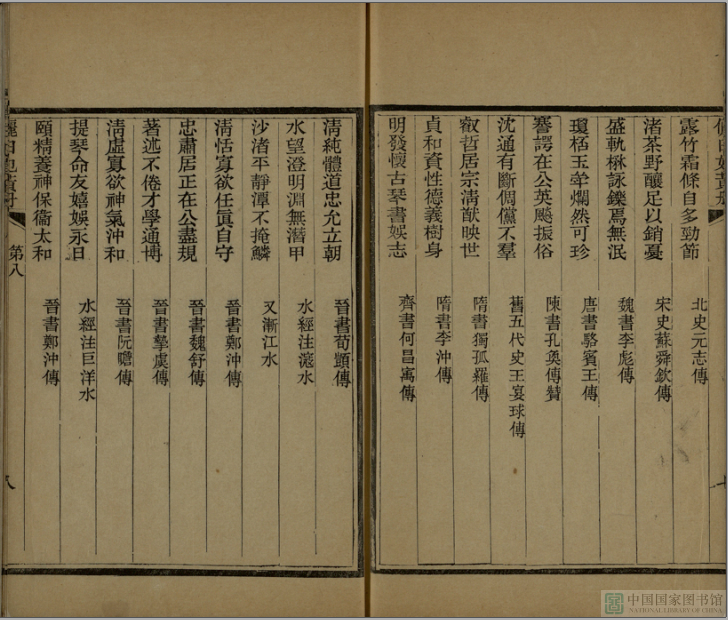 露竹霜條自多勁節 北史元志傳
渚茶野釀足以銷憂 宋史蘇舜欽傳
盛軌楸詠鑠焉無泯 魏書李彪傳
瓊栝玉牽爛然可珍 唐書駱賓王傳
謇諤在公英飈振俗 陳書孔奐傳贊
沈通有斷倜儻不羣 舊五代史王晏球傳
叡哲居宗淸猷映世 隋書獨孤羅傳
貞和資性德義樹身 隋書李沖傳
明發懷古琴書娛志 齊書何昌寓傳
淸純體道忠允立朝 晉書荀顗傳
水望澄明淵無潛甲 水經注滱水
沙渚平靜潭不掩鱗 又漸江水
淸恬寡欲任眞自守 晉書鄭沖傳
忠肅居正在公盡規 晉書魏舒傳
著述不倦才學通博 晉書摯虞傳
淸虛寡欲神氣沖和 晉書阮瞻傳
提琴命友嬉娛永日 水經注巨洋水
頤精養神保衞太和 晉書鄭沖傳
第八
八
中国国家图书馆
NATIONAL LIBRARY OF CHINA